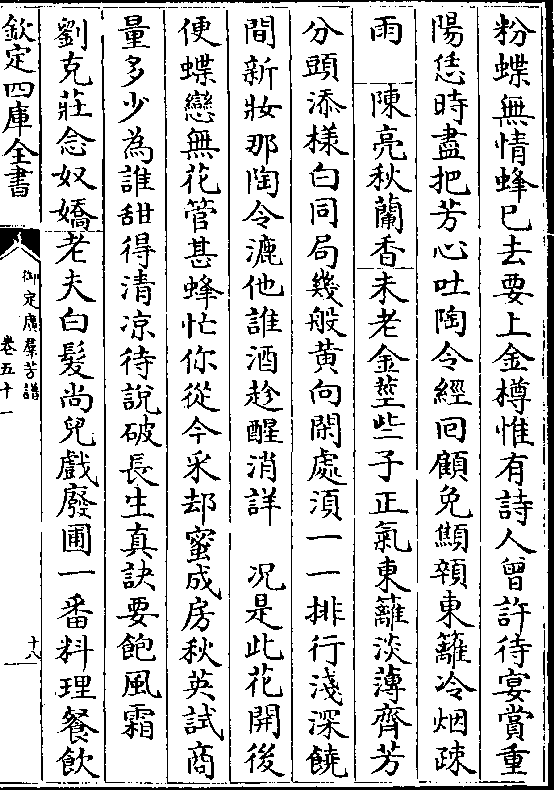 粉蝶無情蜂已去要上金樽惟有詩人曾許待宴賞重
陽恁時盡把芳心吐陶令經回顧免顦顇東籬冷烟疎
雨　陳亮秋蘭香未老金莖些子正氣東籬淡薄齊芳
分頭添様白同局幾般黄向閑處須一一排行淺深饒
間新妝那陶令漉他誰酒趁醒消詳　况是此花開後
便蝶戀無花管甚蜂忙你從今采却蜜成房秋英試商
量多少為誰甜得清凉待說破長生真訣要飽風霜
劉克莊念奴嬌老夫白髮尚兒戲廢圃一番料理餐飲
欽定四庫全書
御定廣羣芳譜
卷五十一
十八